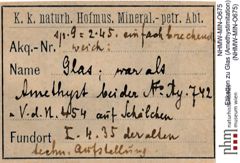 K. k. naturh. Hofmus. Mineral.-petr. Abt.
n=2.45. einfach brechend
Akq.-Nr. weich:
Name Glas; war als
Amethyst bei der No. Ay. 742
V.d.N. 454 auf Schälchen
Fundort I. 4. 35 der alten
techn. Aufstellung
NHMW-MIN-O675
zu Glas (Amethystimitation)
(NHMW-MIN-O675)
nhm
naturhistorisches museum wien